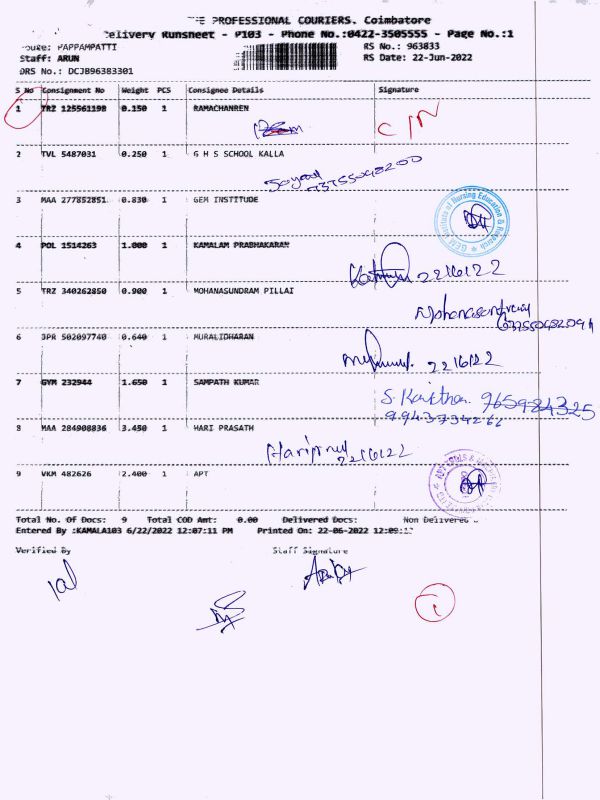 THE PROFESSIONAL COURIERS. Coimbatore
Delivery Runsheet - P103 - Phone No.:0422-3505555 - Page No.:1
Route: PAPPAMPATTI RS No.: 963833
Staff: ARUN RS Date: 22-Jun-2022
DRS No.: DCJB96383301
S No Consignment No Weight PCS Consignee Details Signature
1 TRZ 125561198 0.150 1 RAMACHANREN
C/N
2 TVL 5487031 0.250 1 G H S SCHOOL KALLA
3 MAA 277852851 0.830 1 GEM INSTITUDE
GEM Institute of Nursing Education & Research
4 POL 1514263 1.000 1 KAMALAM PRABHAKARAN
22/6/22
5 TRZ 340262850 0.900 1 MOHANASUNDRAM PILLAI
6 JPR 502097740 0.640 1 MURALIDHARAN
22/6/22
7 GYM 232944 1.650 1 SAMPATH KUMAR
9659284325
8 MAA 284908836 3.450 1 HARI PRASATH
22/6/22
9 VKM 482626 2.400 1 APT
Total No. Of Docs: 9 Total COD Amt: 0.00 Delivered Docs: Non Delivered
Entered By :KAMALA103 6/22/2022 12:07:11 PM Printed On: 22-06-2022
Verified By Staff Signature